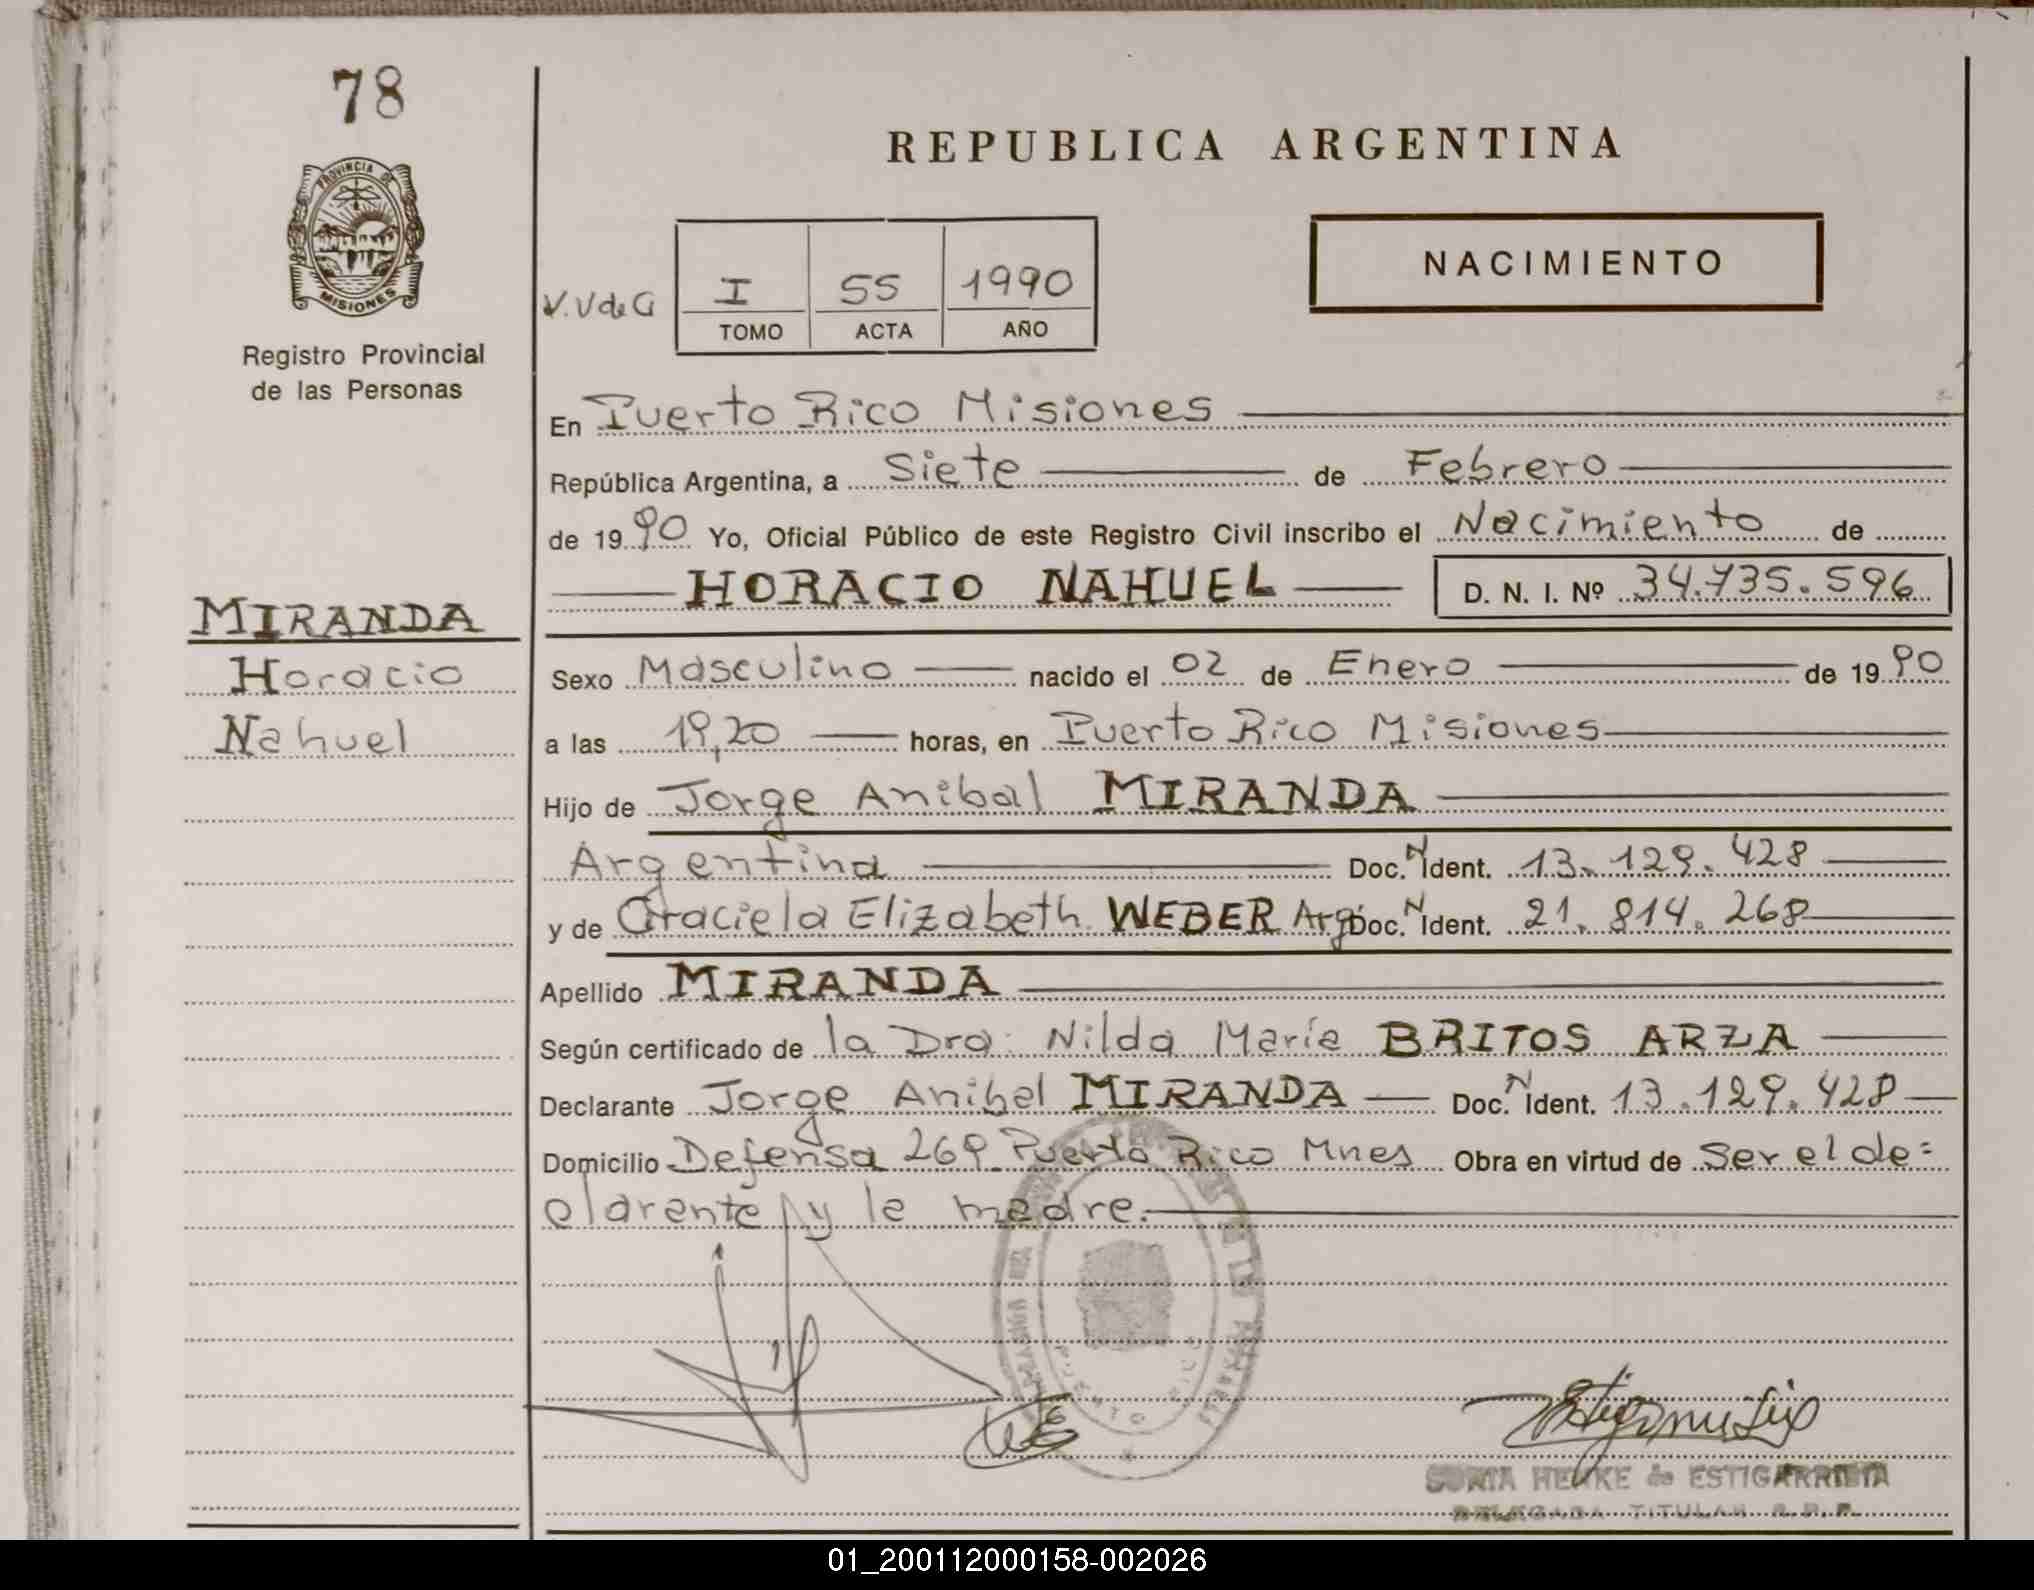 78
REPUBLICA ARGENTINA
PROVINCIA DE
MISIONES
Registro Provincial
de las Personas
NACIMIENTO
V.V de G
I 55 1990
TOMO ACTA AÑO
En Puerto Rico Misiones
República Argentina, a Siete de Febrero
de 1990 Yo, Oficial Público de este Registro Civil inscribo el Nacimiento de
HORACIO NAHUEL D. N. I. Nº 34.735.596
MIRANDA
Horacio
Nahuel
Sexo Masculino nacido el 02 de Enero de 1990
a las 19,20 horas, en Puerto Rico Misiones
Hijo de Jorge Anibal MIRANDA
Argentina Doc. N Ident. 13.129.428
y de Graciela Elizabeth WEBER Arg. Doc. N Ident. 21.814.268
Apellido MIRANDA
Según certificado de la Dra. Nilda María BRITOS ARZA
Declarante Jorge Anibal MIRANDA Doc. N Ident. 13.129.428
Domicilio Defensa 269 Puerto Rico Mnes Obra en virtud de Ser el de=
clarante y la madre.
PUERTO RICO
SONIA HENKE de ESTIGARRIBIA
DELEGADA TITULAR R.P.P.
01_200112000158-002026